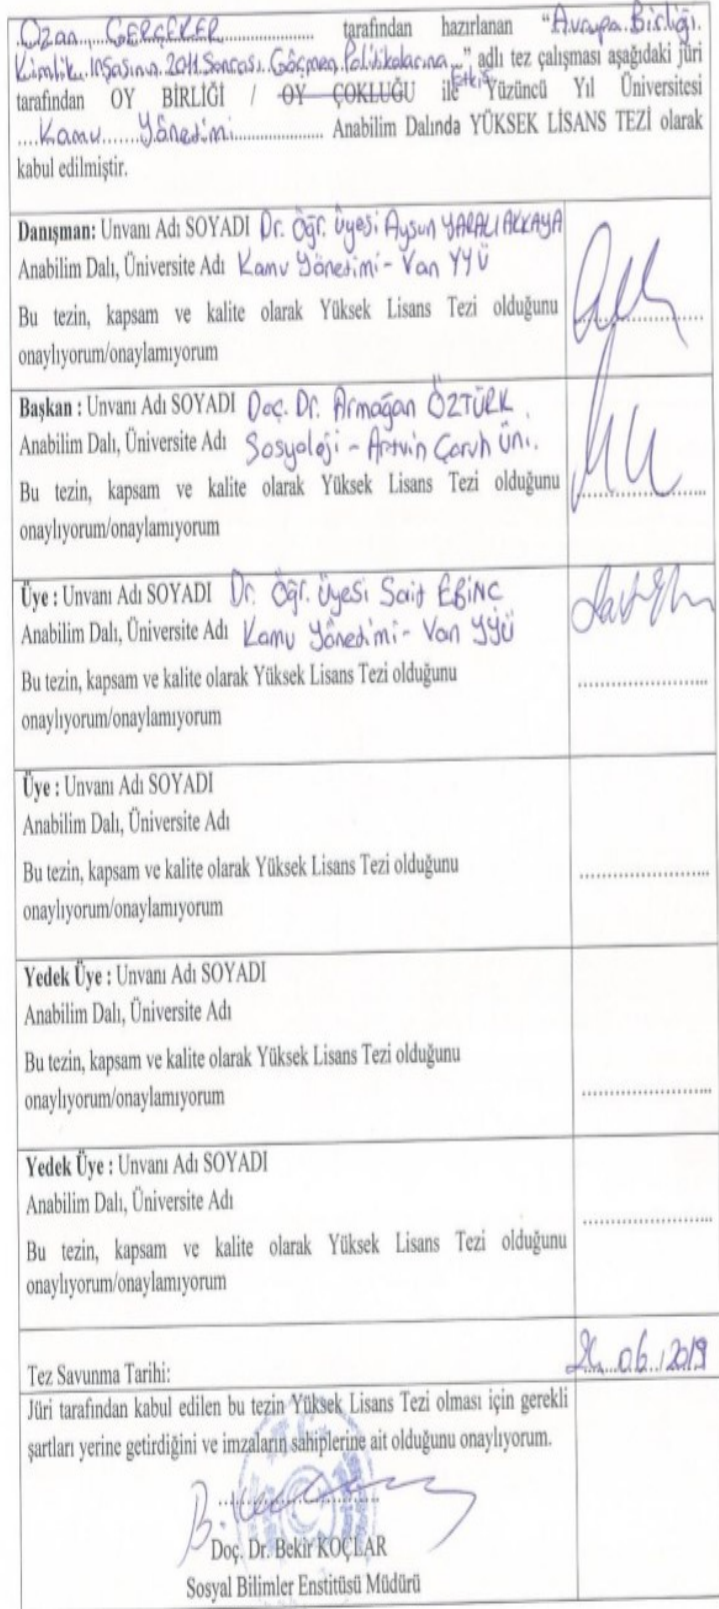 Ozan GERÇEKER tarafından hazırlanan "Avrupa Birliği
Kimlik İnşasının 2011 Sonrası Göçmen Politikalarına Etkisi" adlı tez çalışması aşağıdaki jüri
tarafından OY BİRLİĞİ / OY ÇOKLUĞU ile Yüzüncü Yıl Üniversitesi
....Kamu.......Yönetimi.................... Anabilim Dalında YÜKSEK LİSANS TEZİ olarak
kabul edilmiştir.
Danışman: Unvanı Adı SOYADI Dr. Öğr. Üyesi Aysun YARALI AKKAYA
Anabilim Dalı, Üniversite Adı Kamu Yönetimi - Van YYÜ
Bu tezin, kapsam ve kalite olarak Yüksek Lisans Tezi olduğunu
onaylıyorum/onaylamıyorum
Başkan : Unvanı Adı SOYADI Doç. Dr. Armağan ÖZTÜRK
Anabilim Dalı, Üniversite Adı Sosyoloji - Artvin Çoruh Üni.
Bu tezin, kapsam ve kalite olarak Yüksek Lisans Tezi olduğunu
onaylıyorum/onaylamıyorum
Üye : Unvanı Adı SOYADI Dr. Öğr. Üyesi Sait EBİNC
Anabilim Dalı, Üniversite Adı Kamu Yönetimi - Van YYÜ
Bu tezin, kapsam ve kalite olarak Yüksek Lisans Tezi olduğunu
onaylıyorum/onaylamıyorum
Üye : Unvanı Adı SOYADI
Anabilim Dalı, Üniversite Adı
Bu tezin, kapsam ve kalite olarak Yüksek Lisans Tezi olduğunu
onaylıyorum/onaylamıyorum
Yedek Üye : Unvanı Adı SOYADI
Anabilim Dalı, Üniversite Adı
Bu tezin, kapsam ve kalite olarak Yüksek Lisans Tezi olduğunu
onaylıyorum/onaylamıyorum
Yedek Üye : Unvanı Adı SOYADI
Anabilim Dalı, Üniversite Adı
Bu tezin, kapsam ve kalite olarak Yüksek Lisans Tezi olduğunu
onaylıyorum/onaylamıyorum
Tez Savunma Tarihi: 06 / 2019
Jüri tarafından kabul edilen bu tezin Yüksek Lisans Tezi olması için gerekli
şartları yerine getirdiğini ve imzaların sahiplerine ait olduğunu onaylıyorum.
Doç. Dr. Bekir KOÇLAR
Sosyal Bilimler Enstitüsü Müdürü